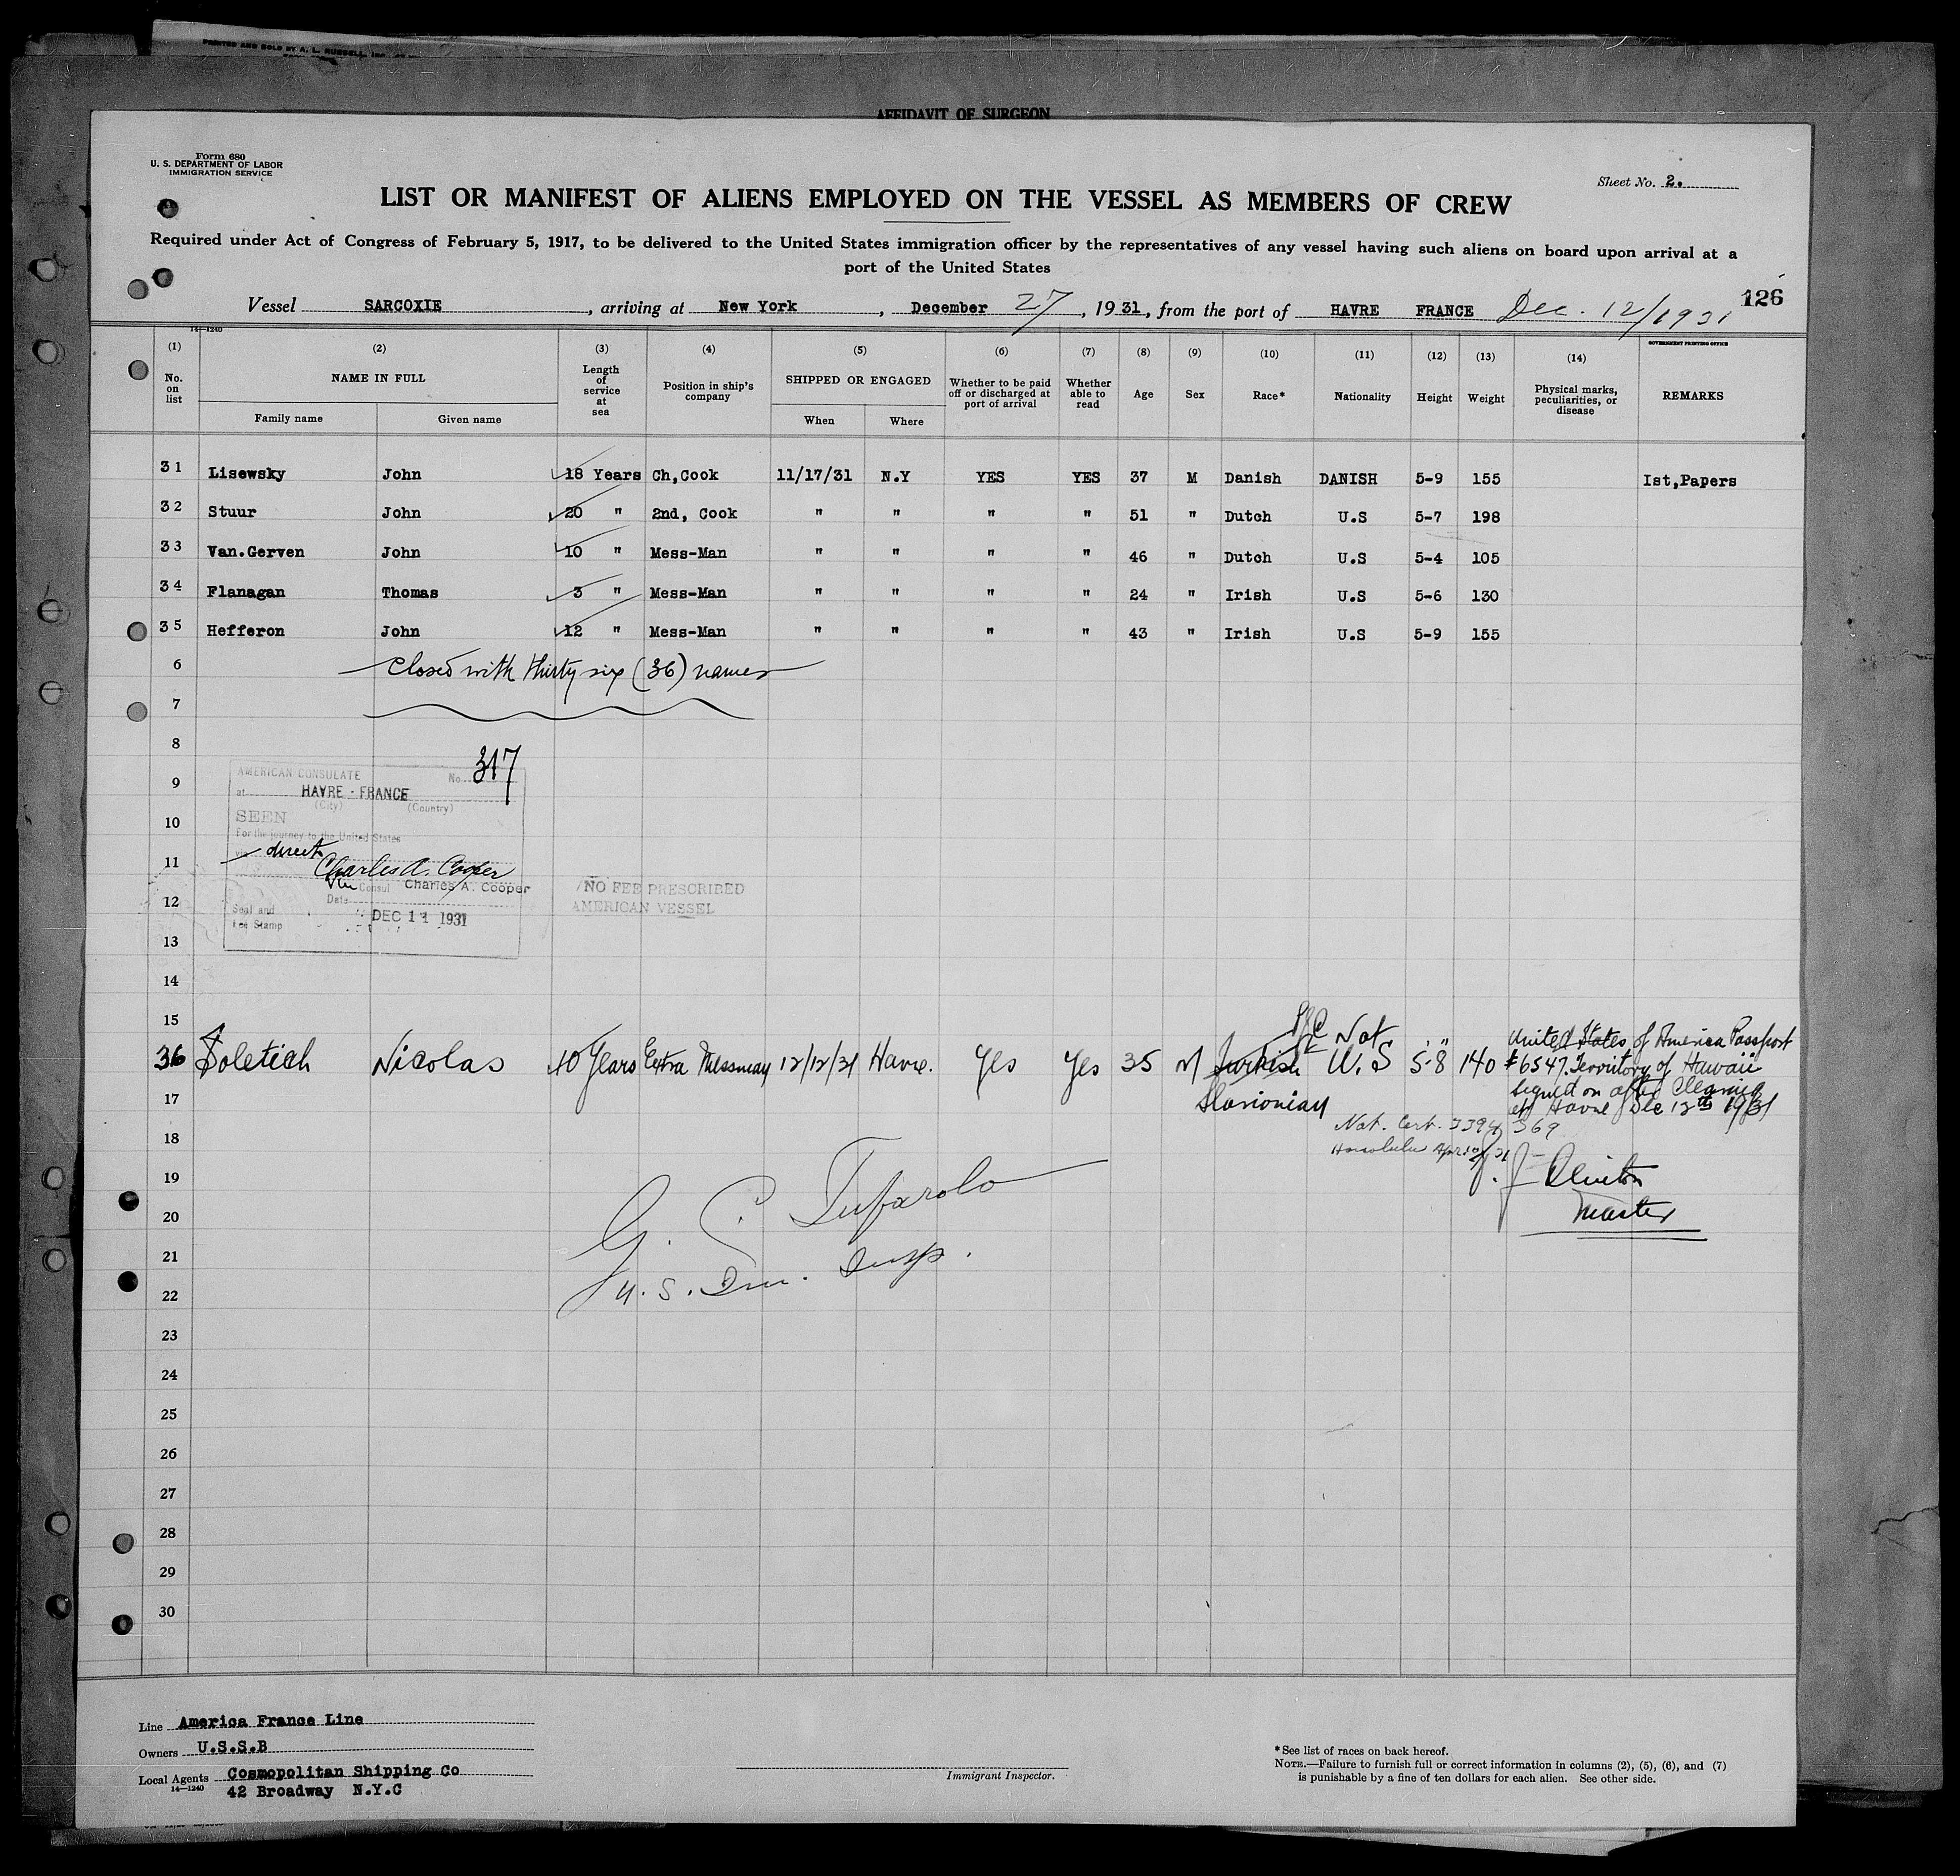 PRINTED AND SOLD BY A. L. RUSSELL, INC.
AFFIDAVIT OF SURGEON
Form 680
U. S. DEPARTMENT OF LABOR
IMMIGRATION SERVICE
Sheet No. 2.
LIST OR MANIFEST OF ALIENS EMPLOYED ON THE VESSEL AS MEMBERS OF CREW
Required under Act of Congress of February 5, 1917, to be delivered to the United States immigration officer by the representatives of any vessel having such aliens on board upon arrival at a
port of the United States
126
Vessel SARCOXIE, arriving at New York, December 27, 1931, from the port of HAVRE FRANCE Dec. 12/1931
14—1240
GOVERNMENT PRINTING OFFICE
(1) (2) (3) (4) (5) (6) (7) (8) (9) (10) (11) (12) (13) (14)
No. on list NAME IN FULL Length of service at sea Position in ship's company SHIPPED OR ENGAGED Whether to be paid off or discharged at port of arrival Whether able to read Age Sex Race* Nationality Height Weight Physical marks, peculiarities, or disease REMARKS
Family name Given name When Where
31 Lisewsky John 18 Years Ch,Cook 11/17/31 N.Y YES YES 37 M Danish DANISH 5-9 155 Ist,Papers
32 Stuur John 20 " 2nd, Cook " " " " 51 " Dutch U.S 5-7 198
33 Van.Gerven John 10 " Mess-Man " " " " 46 " Dutch U.S 5-4 105
34 Flanagan Thomas 3 " Mess-Man " " " " 24 " Irish U.S 5-6 130
35 Hefferon John 12 " Mess-Man " " " " 43 " Irish U.S 5-9 155
6 Closed with thirty six (36) names
7
8
317
AMERICAN CONSULATE No.
9
at HAVRE - FRANCE
(City) (Country)
10
SEEN
For the journey to the United States
via direct
11
Charles A. Cooper
Vice Consul Charles A. Cooper
NO FEE PRESCRIBED
12
Date
AMERICAN VESSEL
Seal and
Fee Stamp
DEC 11 1931
13
14
15
Nat.
United States of America Passport
36 Soletich Nicolas 10 Years Extra Messman 12/12/31 Havre. Yes Yes 35 M Turkish U.S 5-8 140 #6547. Territory of Hawaii
Slavonian
signed on after Clearing
17
at Havre Dec 12th 1931
Nat. Cert.
18
Honolulu
19
J. J. Clinton
G. C. Tufarolo
20
Master
21
U. S. Imm. Insp.
22
23
24
25
26
27
28
29
30
Line America France Line
Owners U.S.S.B
Local Agents Cosmopolitan Shipping Co
14—1240
42 Broadway N.Y.C
Immigrant Inspector.
*See list of races on back hereof.
NOTE.—Failure to furnish full or correct information in columns (2), (5), (6), and (7)
is punishable by a fine of ten dollars for each alien. See other side.